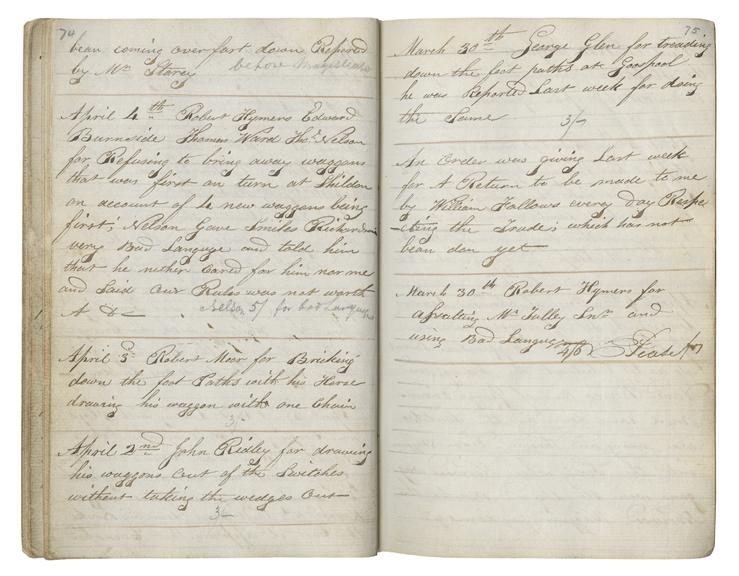 74
bean coming over fast down Reported
by Mr Storey before Magistrates
April 4th Robert Hymers Edward
Burnside Thomas Ward Thos. Nelson
for Refusing to bring away waggons
that was first on turn at Shildon
on account of 4 new waggons being
first; Nelson Gave Smiles Richardson
very Bad Languge and told him
that he nether Cared for him nor me
and Said Our Rules was not worth
A
Nelson 5/ for bad Language
April 3d Robert Moor for Bricking
down the foot Paths with his Horse
drawing his waggon with one Chain
3/
April 2nd John Ridley for drawing
his waggons Out of the Switches
without taking the wedges Out
3/-
75
March 30th George Glen for treading
down the foot paths at Goospool
he was Reported Last week for doing
the Same 3/-
An Order was giving Last week
for A Return to be made to me
by William Fallows every day Respe
-cting the Trade; which has not
bean don yet
March 30th Robert Hymers for
Assalting Mr Talley Snr and
using Bad Languge
2/6 Pease